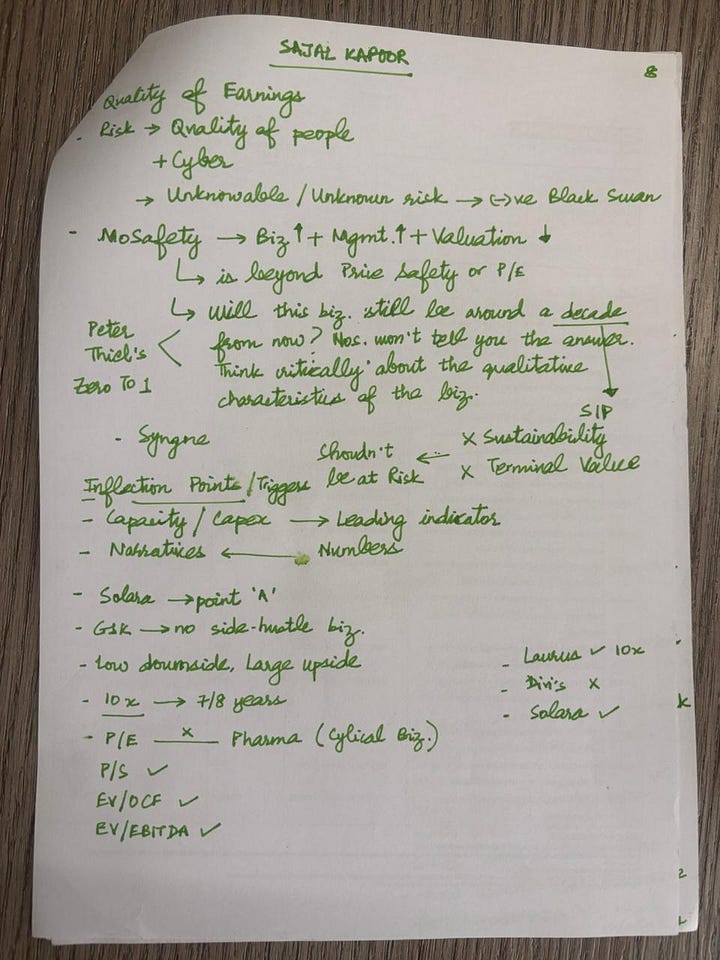 SAJAL KAPOOR
8
Quality of Earnings
- Risk → Quality of people
+ Cyber
→ Unknowable / Unknown risk → (-)ve Black Swan
- MoSafety → Biz ↑ + Mgmt. ↑ + Valuation ↓
↳ is beyond Price Safety or P/E
↳ Will this biz. still be around a decade
from now? Nos. won't tell you the answer.
Think critically about the qualitative
characteristics of the biz.
Peter
Thiel's
Zero To 1
SIP
- Syngne
x Sustainability
x Terminal Value
← Shoudn't
be at Risk
Inflection Points / Triggers
- Capacity / Capex → Leading indicator
- Narratives ↔ Numbers
- Solara → point 'A'
- GSK → no side-hustle biz.
- Low downside, Large upside
- 10x → 7/8 years
- P/E x Pharma (Cylical Biz.)
P/S ✓
EV/OCF ✓
EV/EBITDA ✓
- Laurus ✓ 10x
- Divi's x
- Solara ✓
k
2